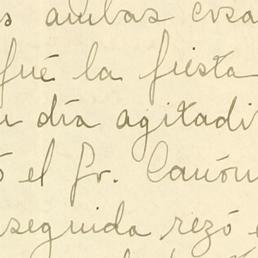 s ambas cosa
fué la fiesta
n día agitadi
ó el Sr. Canón
seguida rezó e